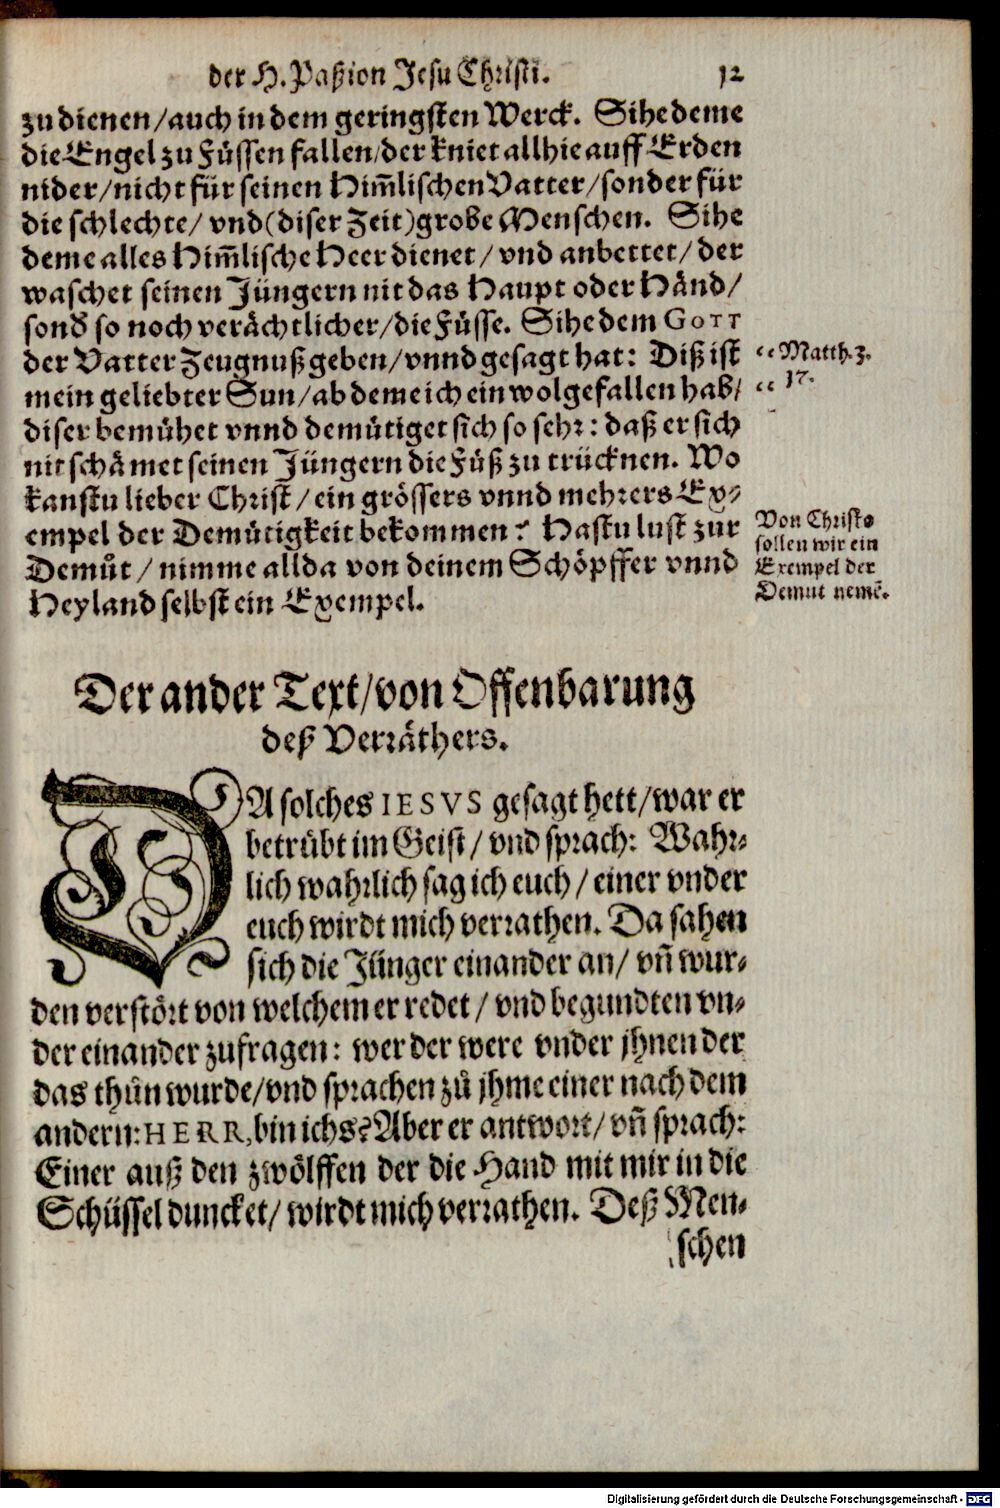 der H. Paßion Jesu Christi. 12
zu dienen/auch in dem geringsten Werck. Sihe deme
die Engel zu Füssen fallen/der kniet allhie auff Erden
nider/nicht für seinen Him̃lischen Vatter/sonder für
die schlechte/ vnd (diser Zeit) grobe Menschen. Sihe
deme alles Him̃lische Heer dienet/ vnd anbettet/ der
waschet seinen Jüngern nit das Haupt oder Händ/
sond̕ so noch verächtlicher/die Füsse. Sihe dem GOTT
der Vatter Zeugnuß geben/vnnd gesagt hat: Diß ist
mein geliebter Sun/ab deme ich ein wolgefallen hab/
diser bemühet vnnd demütiget sich so sehr: daß er sich
nit schämet seinen Jüngern die Füß zu trücknen. Wo
kanstu lieber Christ/ ein grössers vnnd mehrers Ex-
empel der Demütigkeit bekommen? Hastu lust zur
Demůt/ nimme allda von deinem Schöpffer vnnd
Heyland selbst ein Exempel.
“ Matth. 3.
“ 17.
Von Christo
sollen wir ein
Exempel der
Demut nemē.
Der ander Text/von Offenbarung
deß Verräthers.
DA solches IESVS gesagt hett/war er
betrübt im Geist/ vnd sprach: Wahr-
lich wahrlich sag ich euch/ einer vnder
euch wirdt mich verrathen. Da sahen
sich die Jünger einander an/ vñ wur-
den verstört von welchem er redet/ vnd begundten vn-
der einander zufragen: wer der were vnder jhnen der
das thůn wurde/vnd sprachen zů jhme einer nach dem
andern: HERR, bin ichs? Aber er antwort/ vñ sprach:
Einer auß den zwölffen der die Hand mit mir in die
Schüssel duncket/ wirdt mich verrathen. Deß Men-
schen
Digitalisierung gefördert durch die Deutsche Forschungsgemeinschaft - DFG